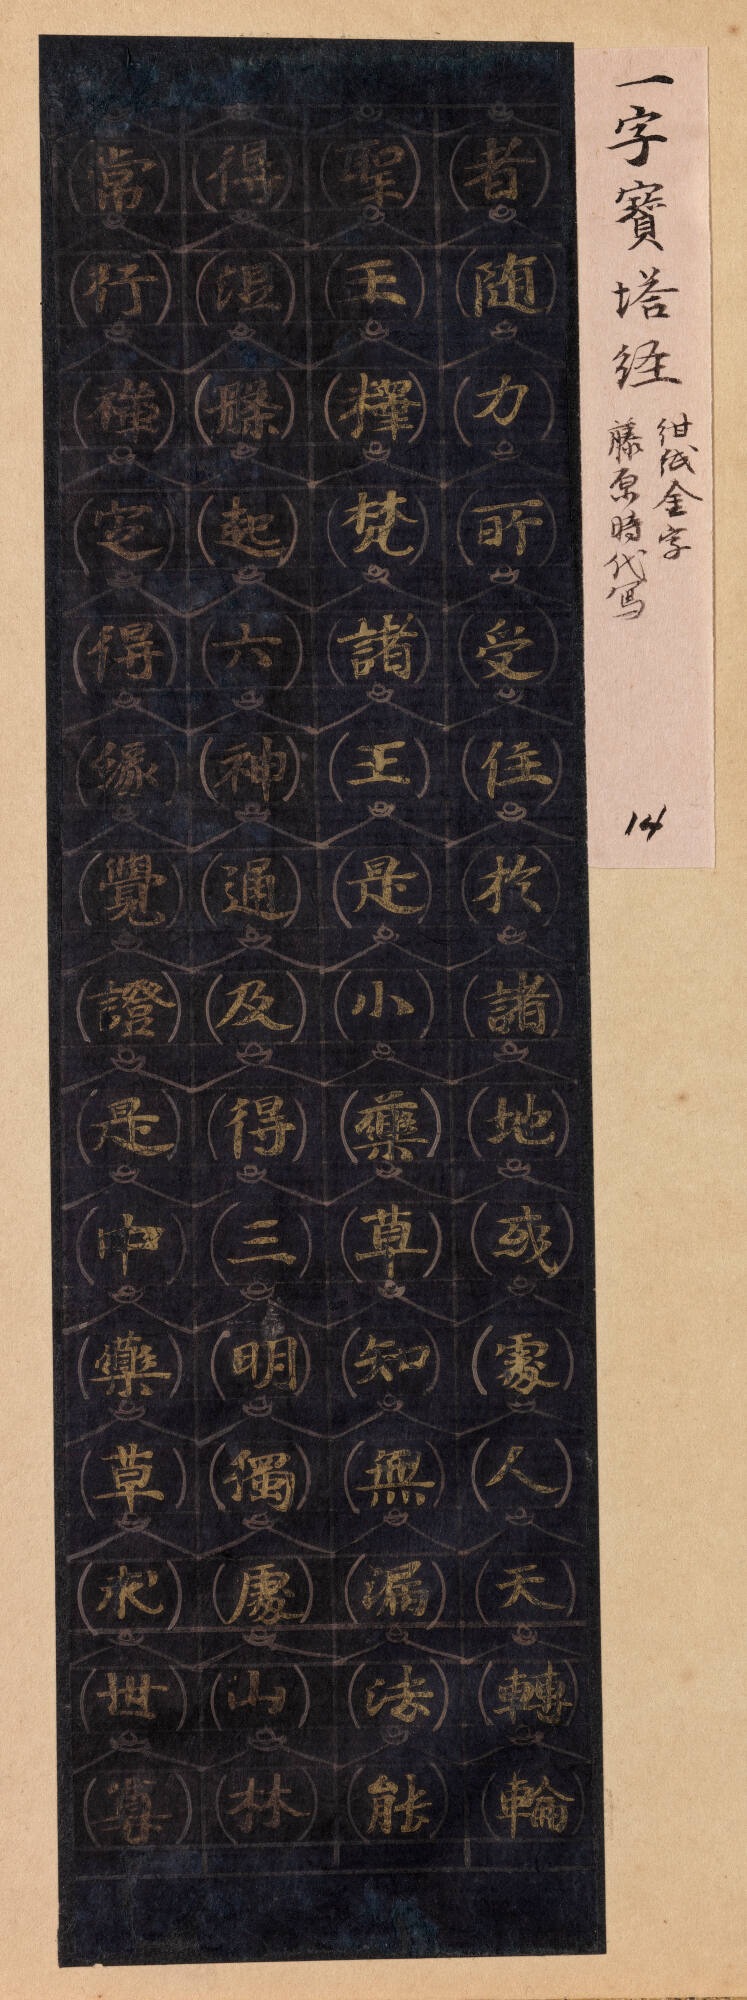 一字寳塔経
紺紙金字
藤原時代写
14
者随力所受住於諸地或處人天轉輪
聖王釋梵諸王是小藥草知無漏法能
得涅槃起六神通及得三明獨處山林
常行禅定得縁覺證是中藥草求世尊